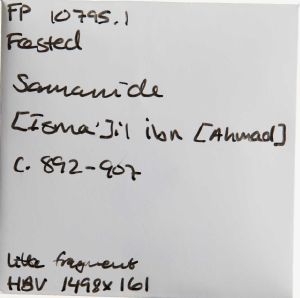 FP 10795.1
Fasted
Samanide
[Isma']il ibn [Ahmad]
c. 892-907
Little fragment
HBV 1498x161